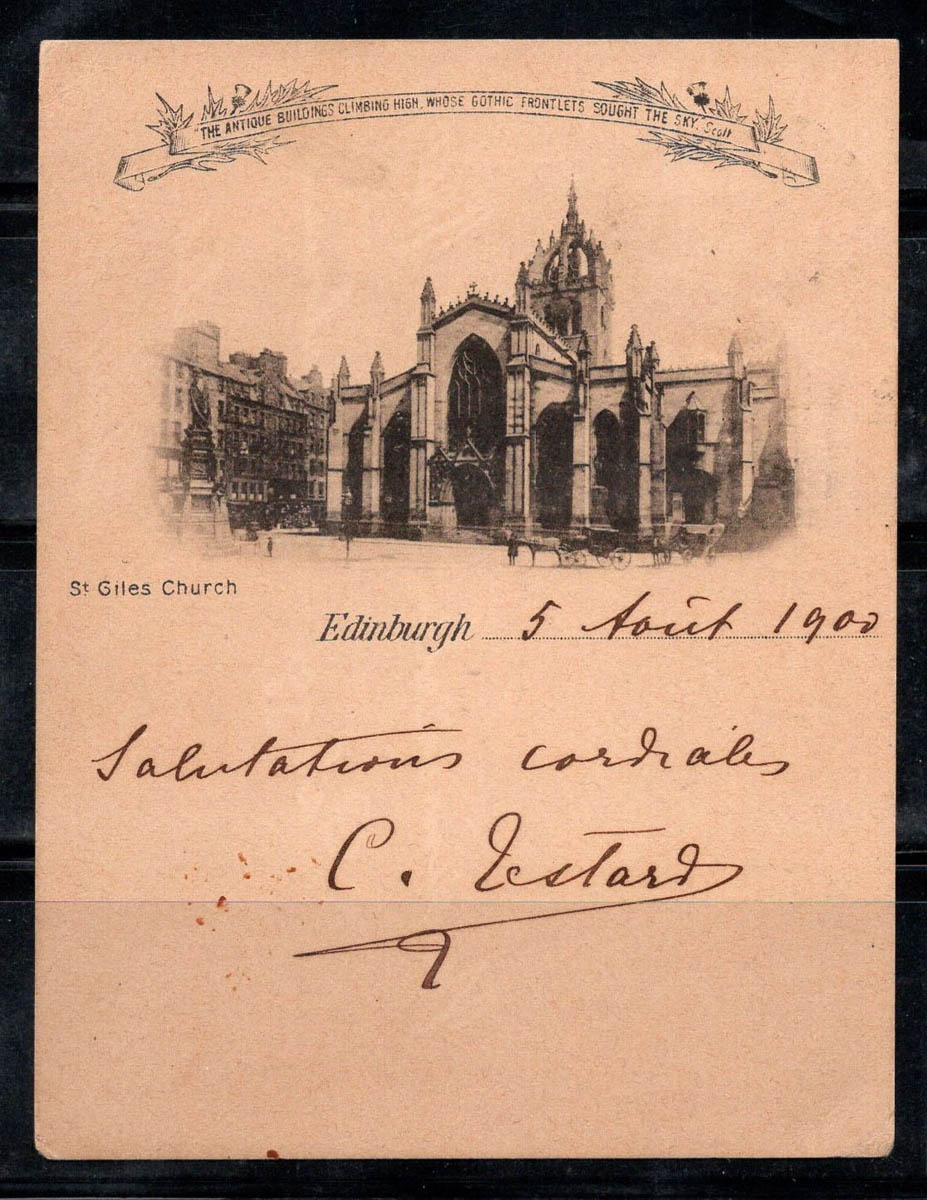 "THE ANTIQUE BUILDINGS CLIMBING HIGH, WHOSE GOTHIC FRONTLETS SOUGHT THE SKY." Scott
St Giles Church
Edinburgh 5 Août 1900
Salutations cordiales
C. Testard